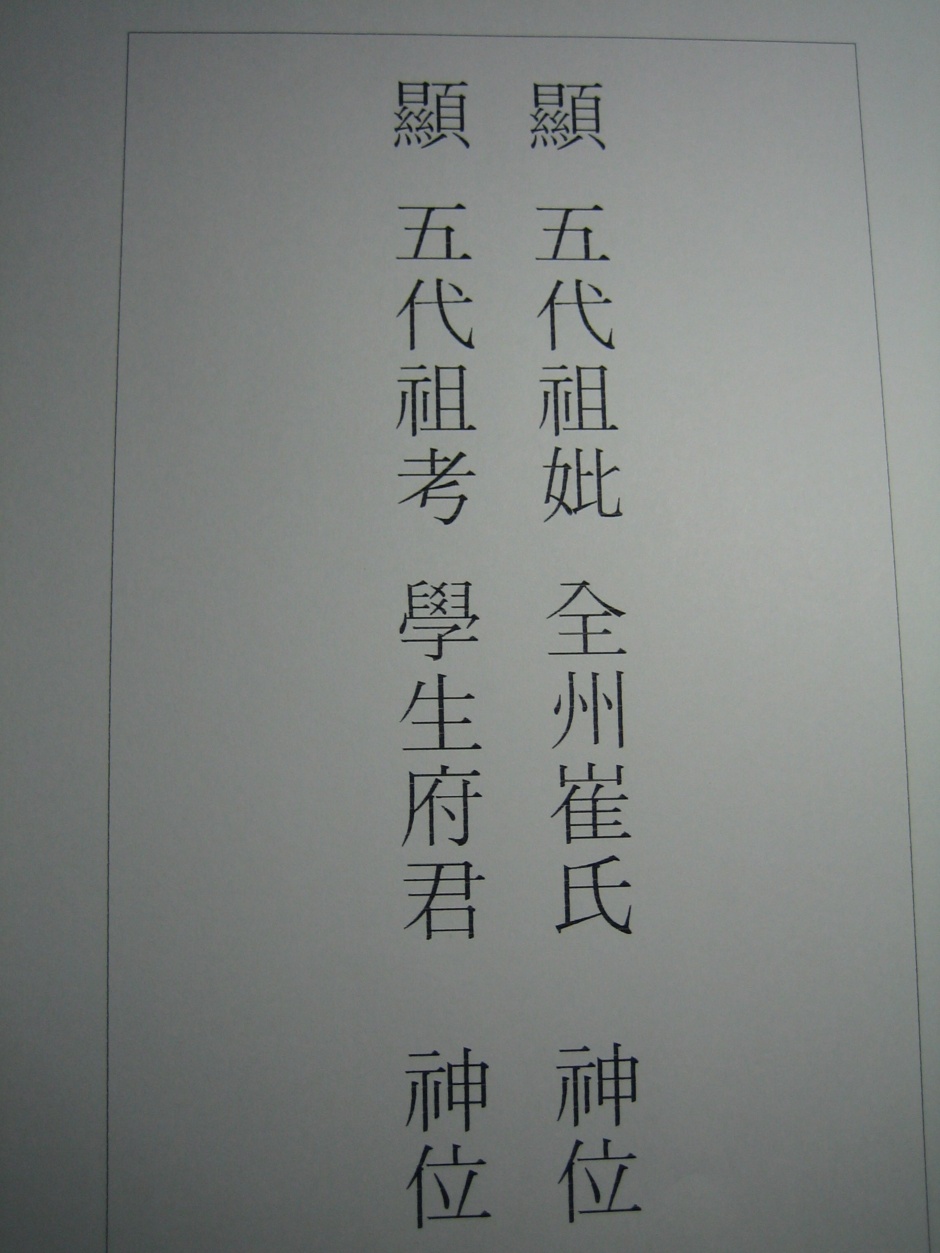 顯 五代祖妣 全州崔氏 神位
顯 五代祖考 學生府君 神位